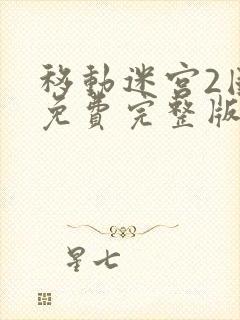 移動迷宮2
免費完整版
星七